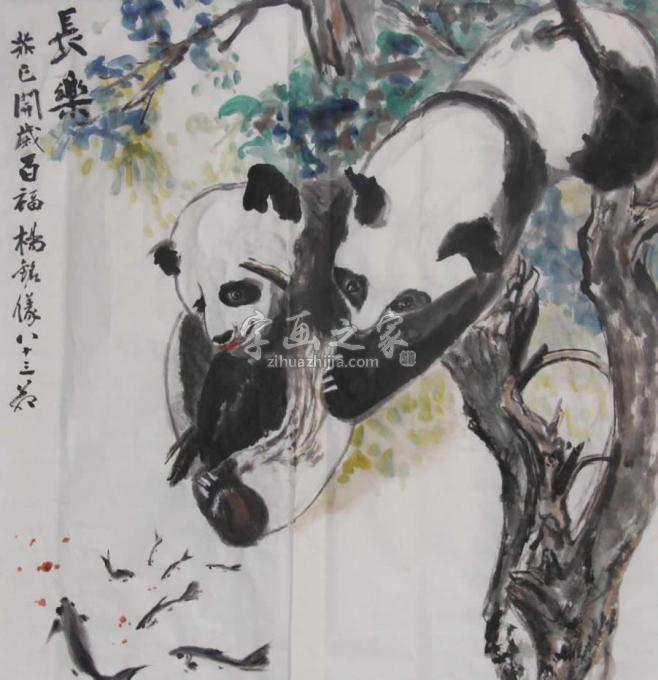 長樂
癸巳開歲百福楊銘儀八十三并
字画之家
zihuazhijia.com